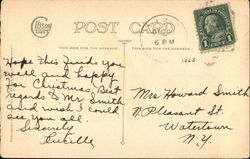 POST CARD
THIS SIDE FOR THE MESSAGE
THIS SIDE FOR THE ADDRESS
6 PM
1923
1 CENT 1
Hope this finds you
well and happy
for Christmas. Best
regards to Mr Smith
and wish I could
see you all.
Sincerely
Lucille
Mrs Howard Smith
N. Pleasant St.
Watertown
N.Y.